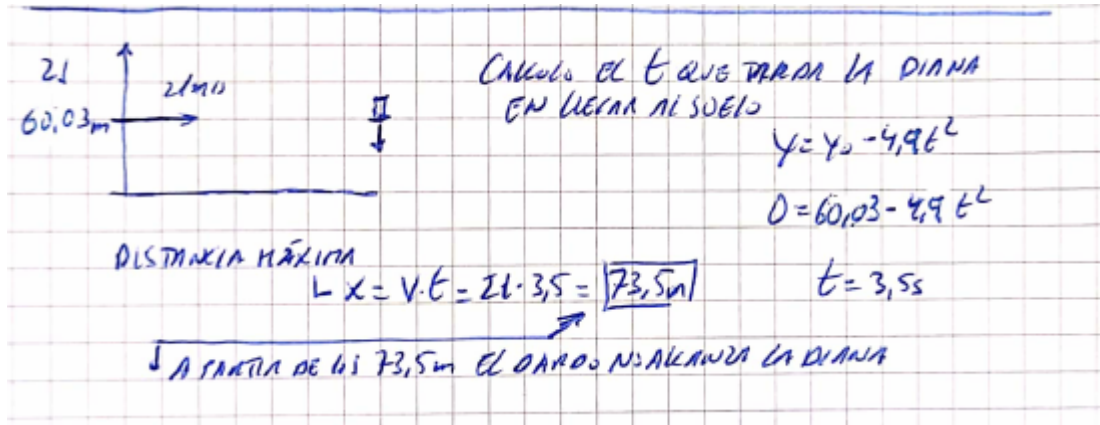 21
60,03m
21m/s
CALCULO EL t QUE TARDA LA DIANA
EN LLEGAR AL SUELO
y = y₀ - 4,9t²
0 = 60,03 - 4,9 t²
t = 3,5s
DISTANCIA MÁXIMA
x = V·t = 21·3,5 = 73,5m
A PARTIR DE LOS 73,5m EL DARDO NO ALCANZA LA DIANA